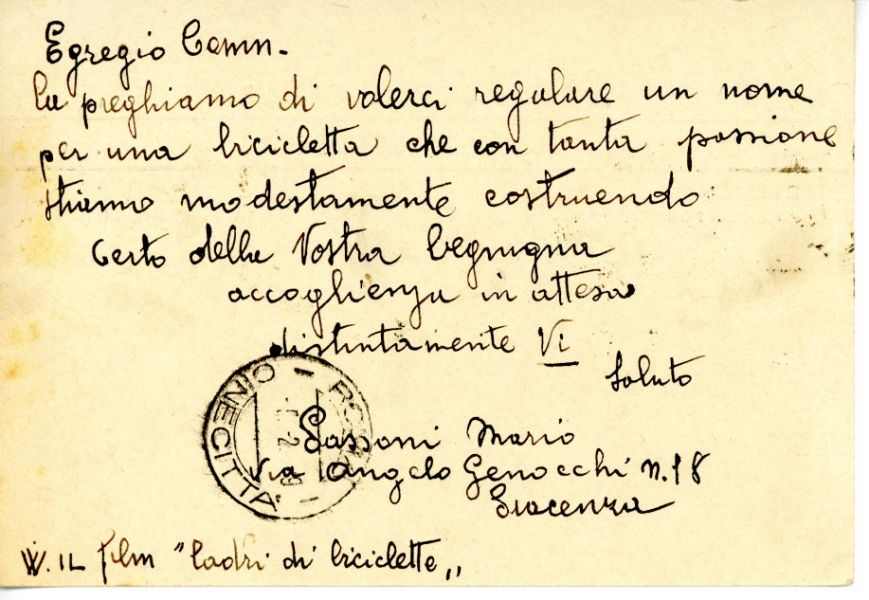 Egregio Comm.
La preghiamo di volerci regalare un nome
per una bicicletta che con tanta passione
stiamo modestamente costruendo
Certo della Vostra benigna
accoglienza in attesa
distintamente Vi
saluto
Sassoni Mario
Via Angelo Genocchi n.18
Piacenza
W. IL film "ladri di biciclette„
ROMA
CINECITTÀ